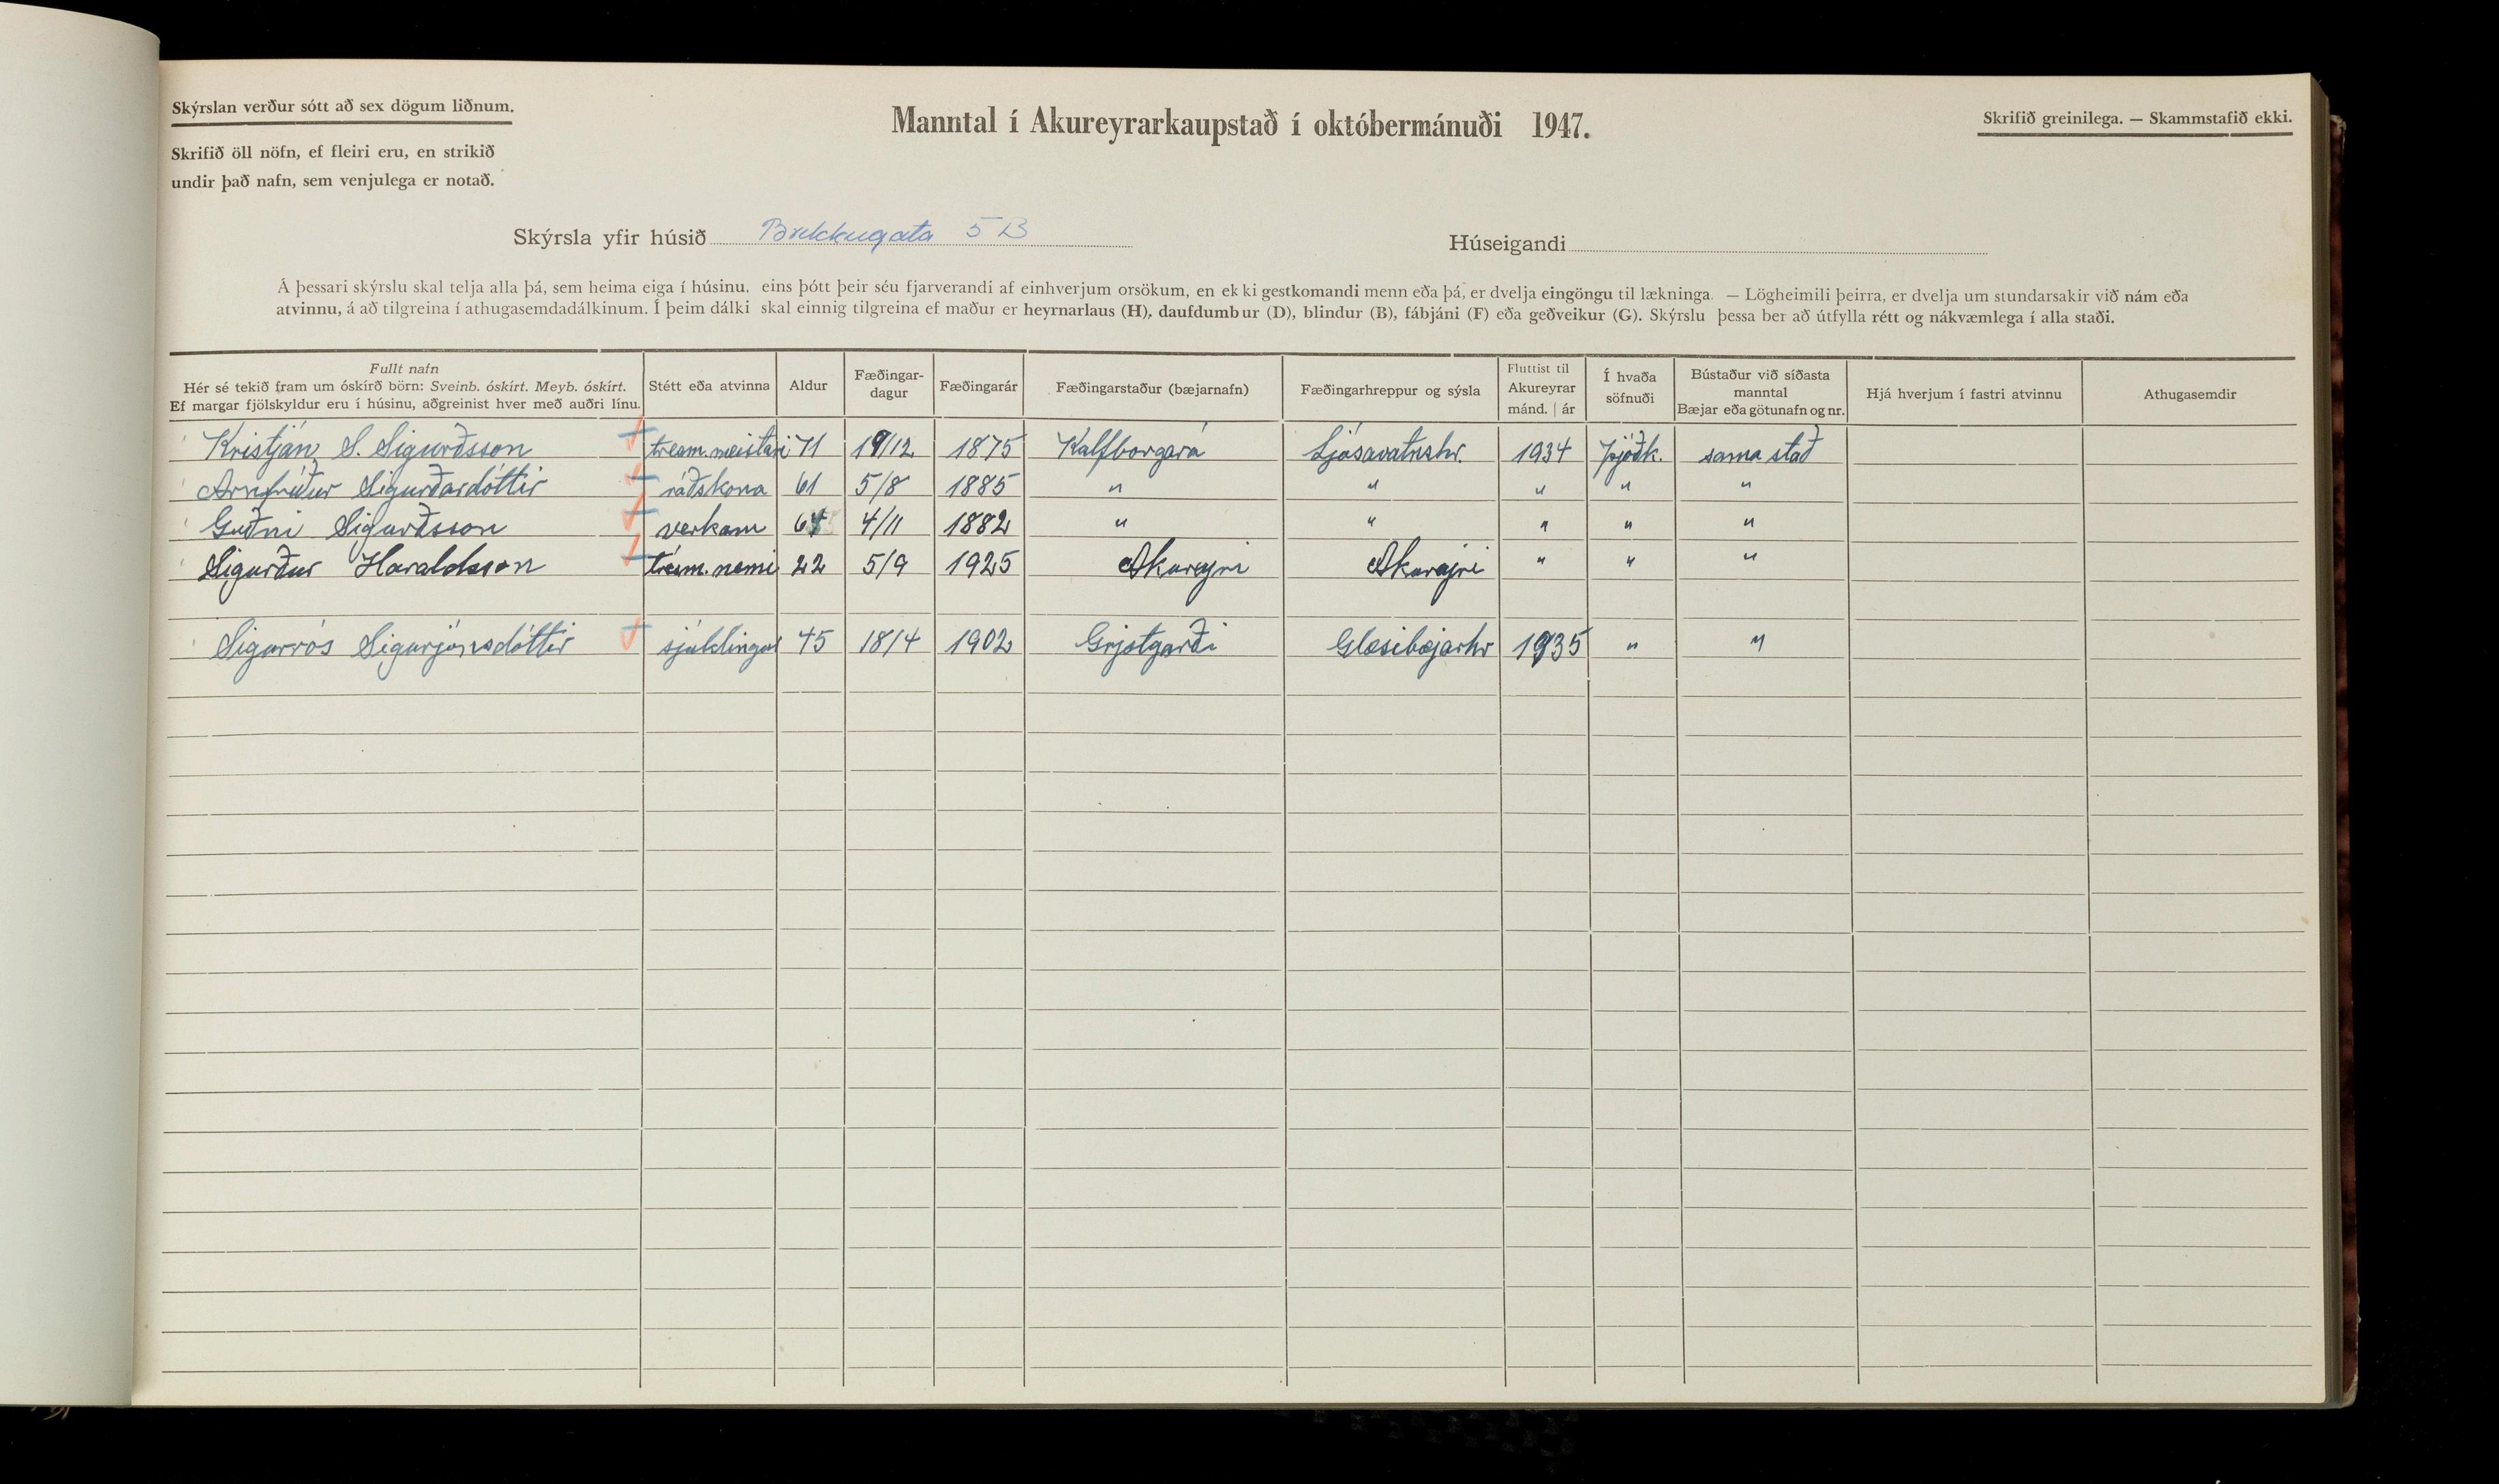 Skýrslan verður sótt að sex dögum liðnum.
Skrifið öll nöfn, ef fleiri eru, en strikið
undir það nafn, sem venjulega er notað.
Manntal í Akureyrarkaupstað í októbermánuði 1947.
Skrifið greinilega. — Skammstafið ekki.
Skýrsla yfir húsið Brekkugata 5 B
Húseigandi
Á þessari skýrslu skal telja alla þá, sem heima eiga í húsinu, eins þótt þeir séu fjarverandi af einhverjum orsökum, en ekki gestkomandi menn eða þá, er dvelja eingöngu til lækninga. — Lögheimili þeirra, er dvelja um stundarsakir við nám eða
atvinnu, á að tilgreina í athugasemdadálkinum. Í þeim dálki skal einnig tilgreina ef maður er heyrnarlaus (H), daufdumbur (D), blindur (B), fábjáni (F) eða geðveikur (G). Skýrslu þessa ber að útfylla rétt og nákvæmlega í alla staði.
Fullt nafn
Hér sé tekið fram um óskírð börn: Sveinb. óskírt. Meyb. óskírt.
Ef margar fjölskyldur eru í húsinu, aðgreinist hver með auðri línu.
Stétt eða atvinna
Aldur
Fæðingar-
dagur
Fæðingarár
Fæðingarstaður (bæjarnafn)
Fæðingarhreppur og sýsla
Fluttist til
Akureyrar
mánd. | ár
Í hvaða
söfnuði
Bústaður við síðasta
manntal
Bæjar eða götunafn og nr.
Hjá hverjum í fastri atvinnu
Athugasemdir
Kristján S. Sigurðsson tresm. meistari 71 19/12 1875 Kalfborgará Ljósavatnshr. 1934 Þjóðk. sama stað
Arnfríður Sigurðardóttir ráðskona 61 5/8 1885 " " " " "
Guðni Sigurðsson verkam 64 4/11 1882 " " " " "
Sigurður Haraldsson trésm. nemi 22 5/9 1925 Akureyri Akureyri " " "
Sigurrós Sigurjónsdóttir sjúklingur 45 18/4 1902 Grjotgarði Glæsibæjarhr 1935 " "